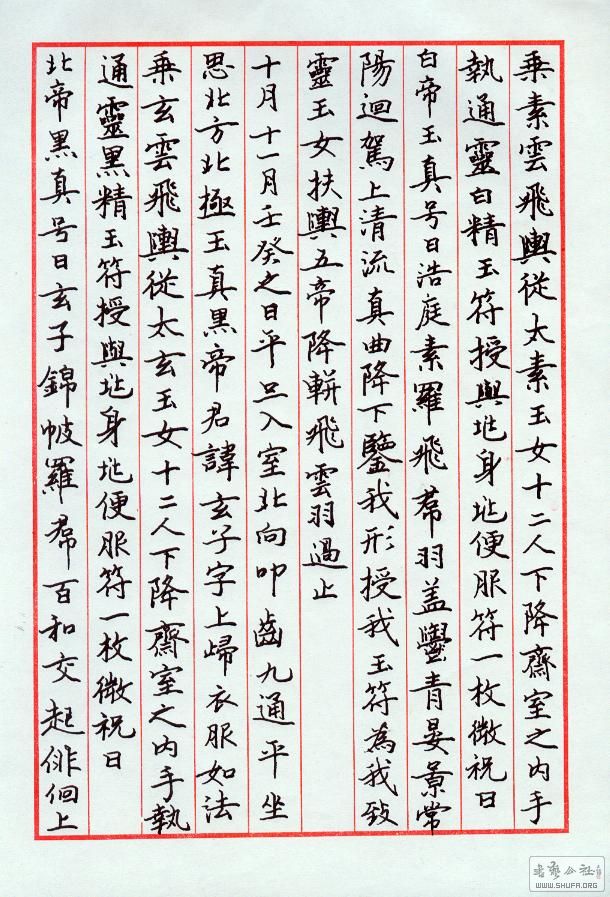 乗素雲飛輿從太素玉女十二人下降齋室之内手
執通靈白精玉符授與兆身兆便服符一枚微祝曰
白帝玉真号曰浩庭素羅飛帬羽盖鬱青晏景常
陽迴駕上清流真曲降下鑒我形授我玉符為我致
靈玉女扶輿五帝降軿飛雲羽過止
十月十一月壬癸之日平旦入室北向叩齒九通平坐
思北方北極玉真黑帝君諱玄子字上歸衣服如法
乗玄雲飛輿從太玄玉女十二人下降齋室之内手執
通靈黑精玉符授與兆身兆便服符一枚微祝曰
北帝黑真号曰玄子錦帔羅帬百和交起俳佪上
書藝公社
WWW.SHUFA.ORG